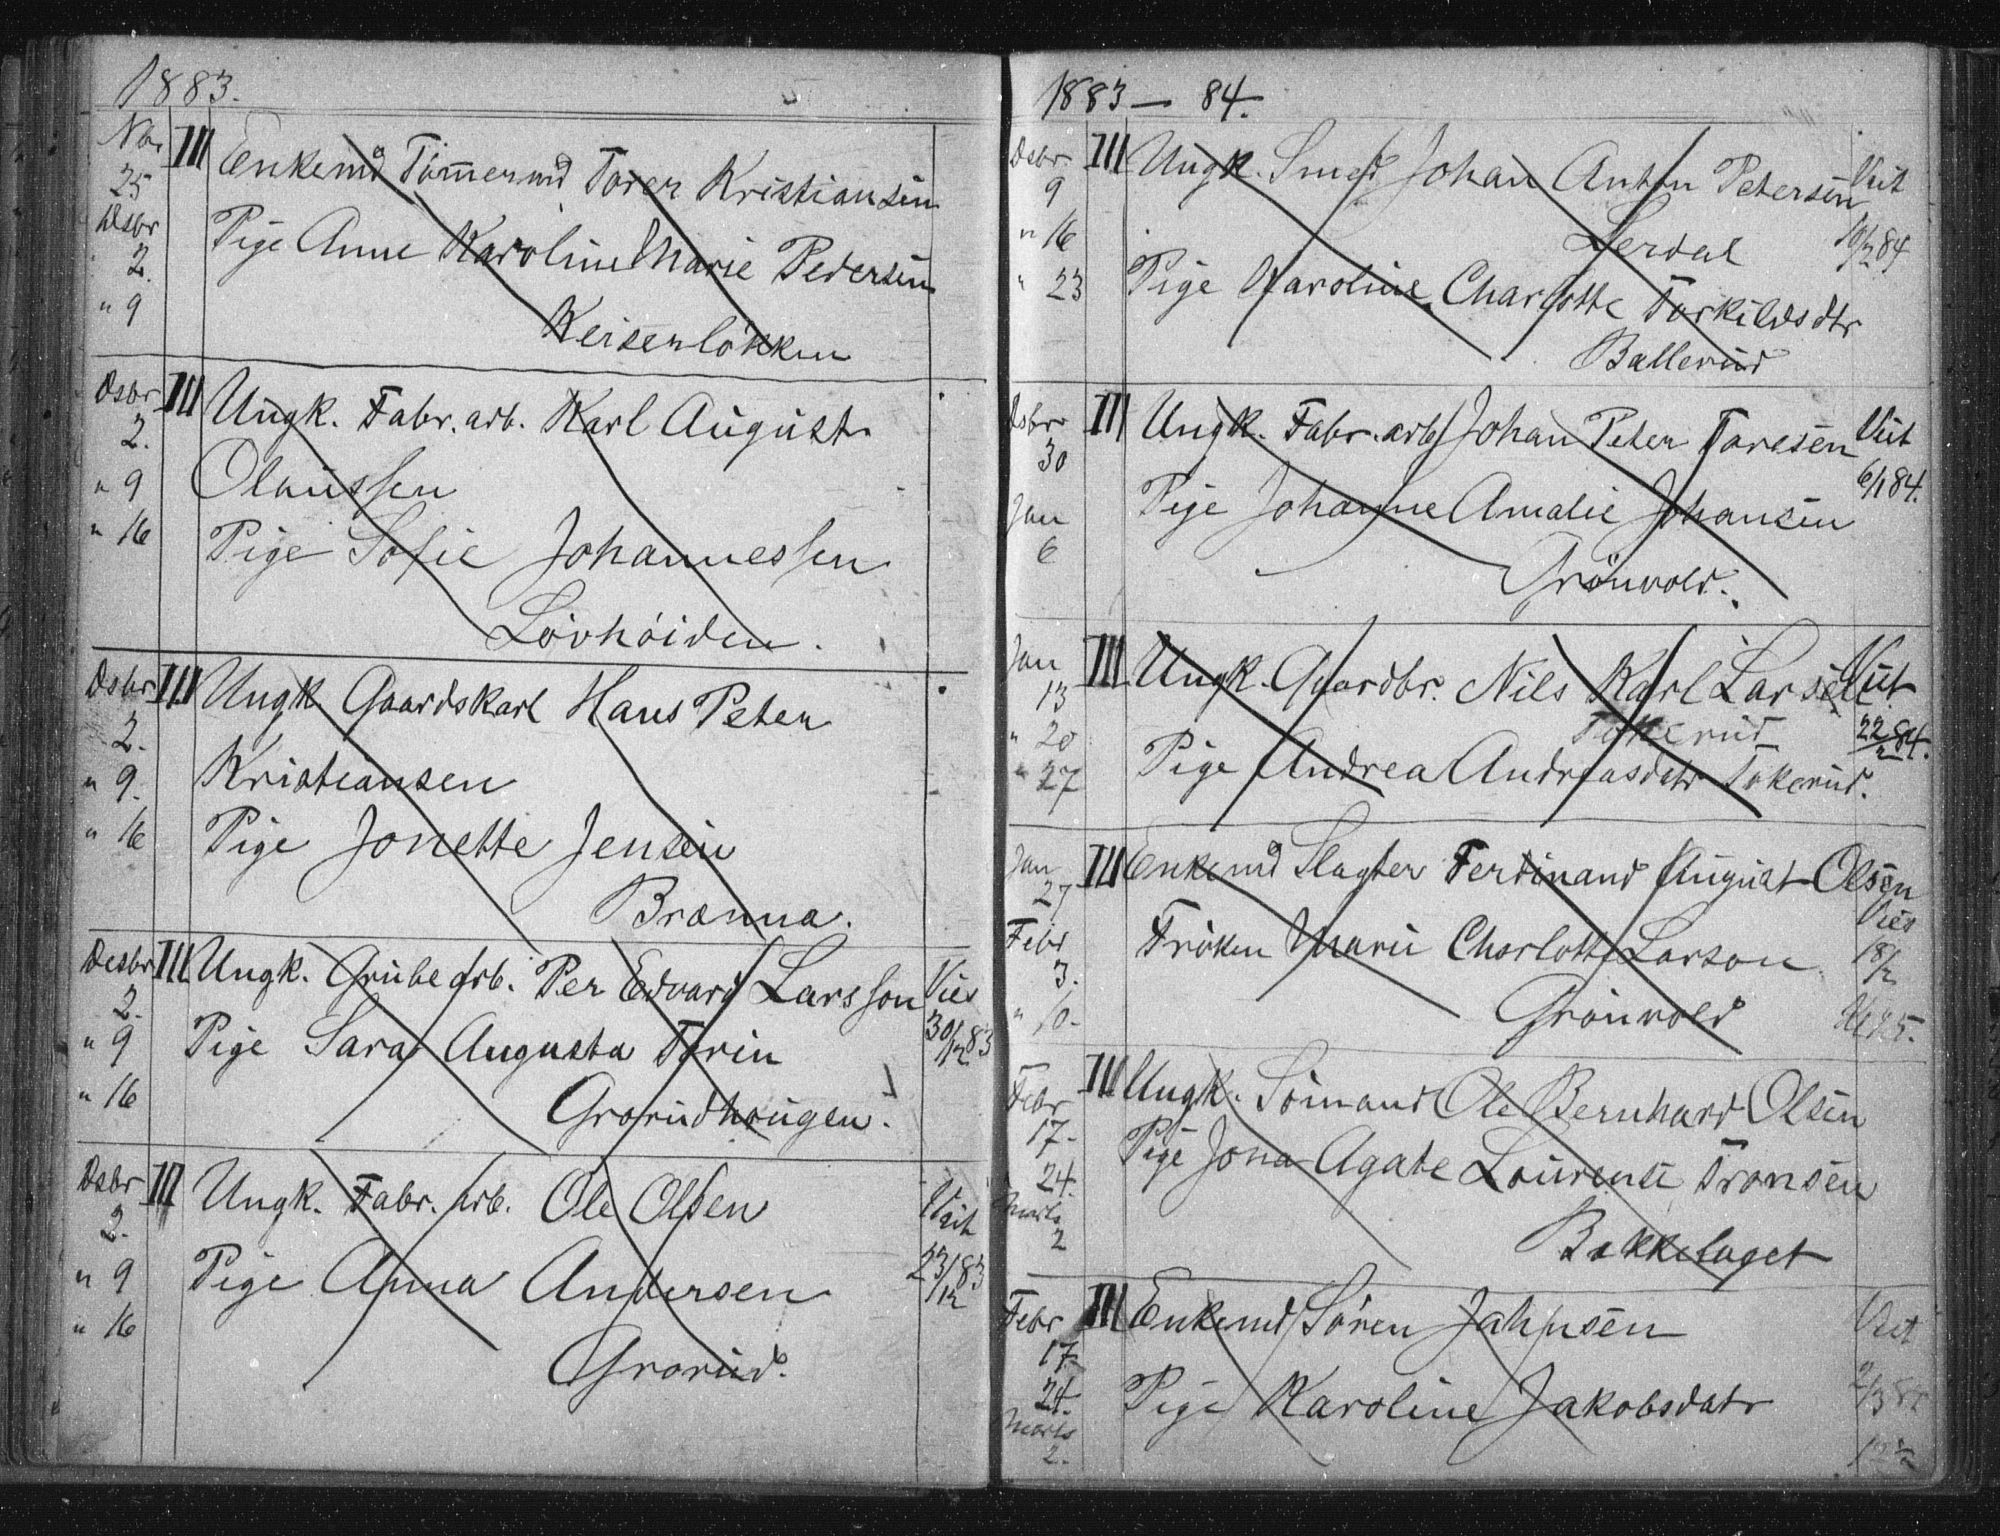 1883.
Nov. III Enkemd Tömmermd Torer Kristiansen
25
Dsbr Pige Anne Karoline Marie Pedersen
2.
" 9 Keiserlökken
Dsbr III Ungk. Fabr. arb. Karl August
2.
" 9 Olaussen
" 16 Pige Sofie Johannessen
Lövhöiden.
Dsbr III Ungk Gaardskarl Hans Peter
2.
" 9. Kristiansen
" 16 Pige Jonette Jensen
Brænna.
Desbr III Ungk. Grube arb. Per Edvard Larsson Vies
2. 30/12 83
" 9 Pige Sara Augusta Torin
" 16 Grorudhaugen.
Dsbr III Ungk. Fabr. arb. Ole Olsen Viet
2. 23/12 83
" 9 Pige Anna Andersen
" 16 Grorud.
1883 — 84.
Dsbr III Ungk. Smed Johan Anton Petersen Viet
9
" 16 Lerdal
" 23 Pige Karoline Charlotte Torkildsdtr
Ballerud
Dsbr III Ungk. Fabr. arb. Johan Peter Toresen Viet
30 6/1 84.
Jan Pige Johanne Amalie Johansen
6 Grönvold.
Jan III Ungk. Gaardbr. Nils Karl Larsen Viet
13 Tokerud 22 84.
" 20
" 27 Pige Andrea Andreasdatr Tokerud.
Jan III Enkemd Slagter Ferdinand August Olsen
27 Vies
Febr Fröken Marie Charlotte Larson 18/2
3.
" 10. Grönvold
Febr III Ungk. Sömand Ole Bernhard Olsen
17.
24. Pige Jona Agate Laurense Tronsen
Marts
2 Bækkelaget
Febr III Enkemd Sören Jahnsen Viet
17. 2/3
24. Pige Karoline Jakobsdatr
Marts
2.